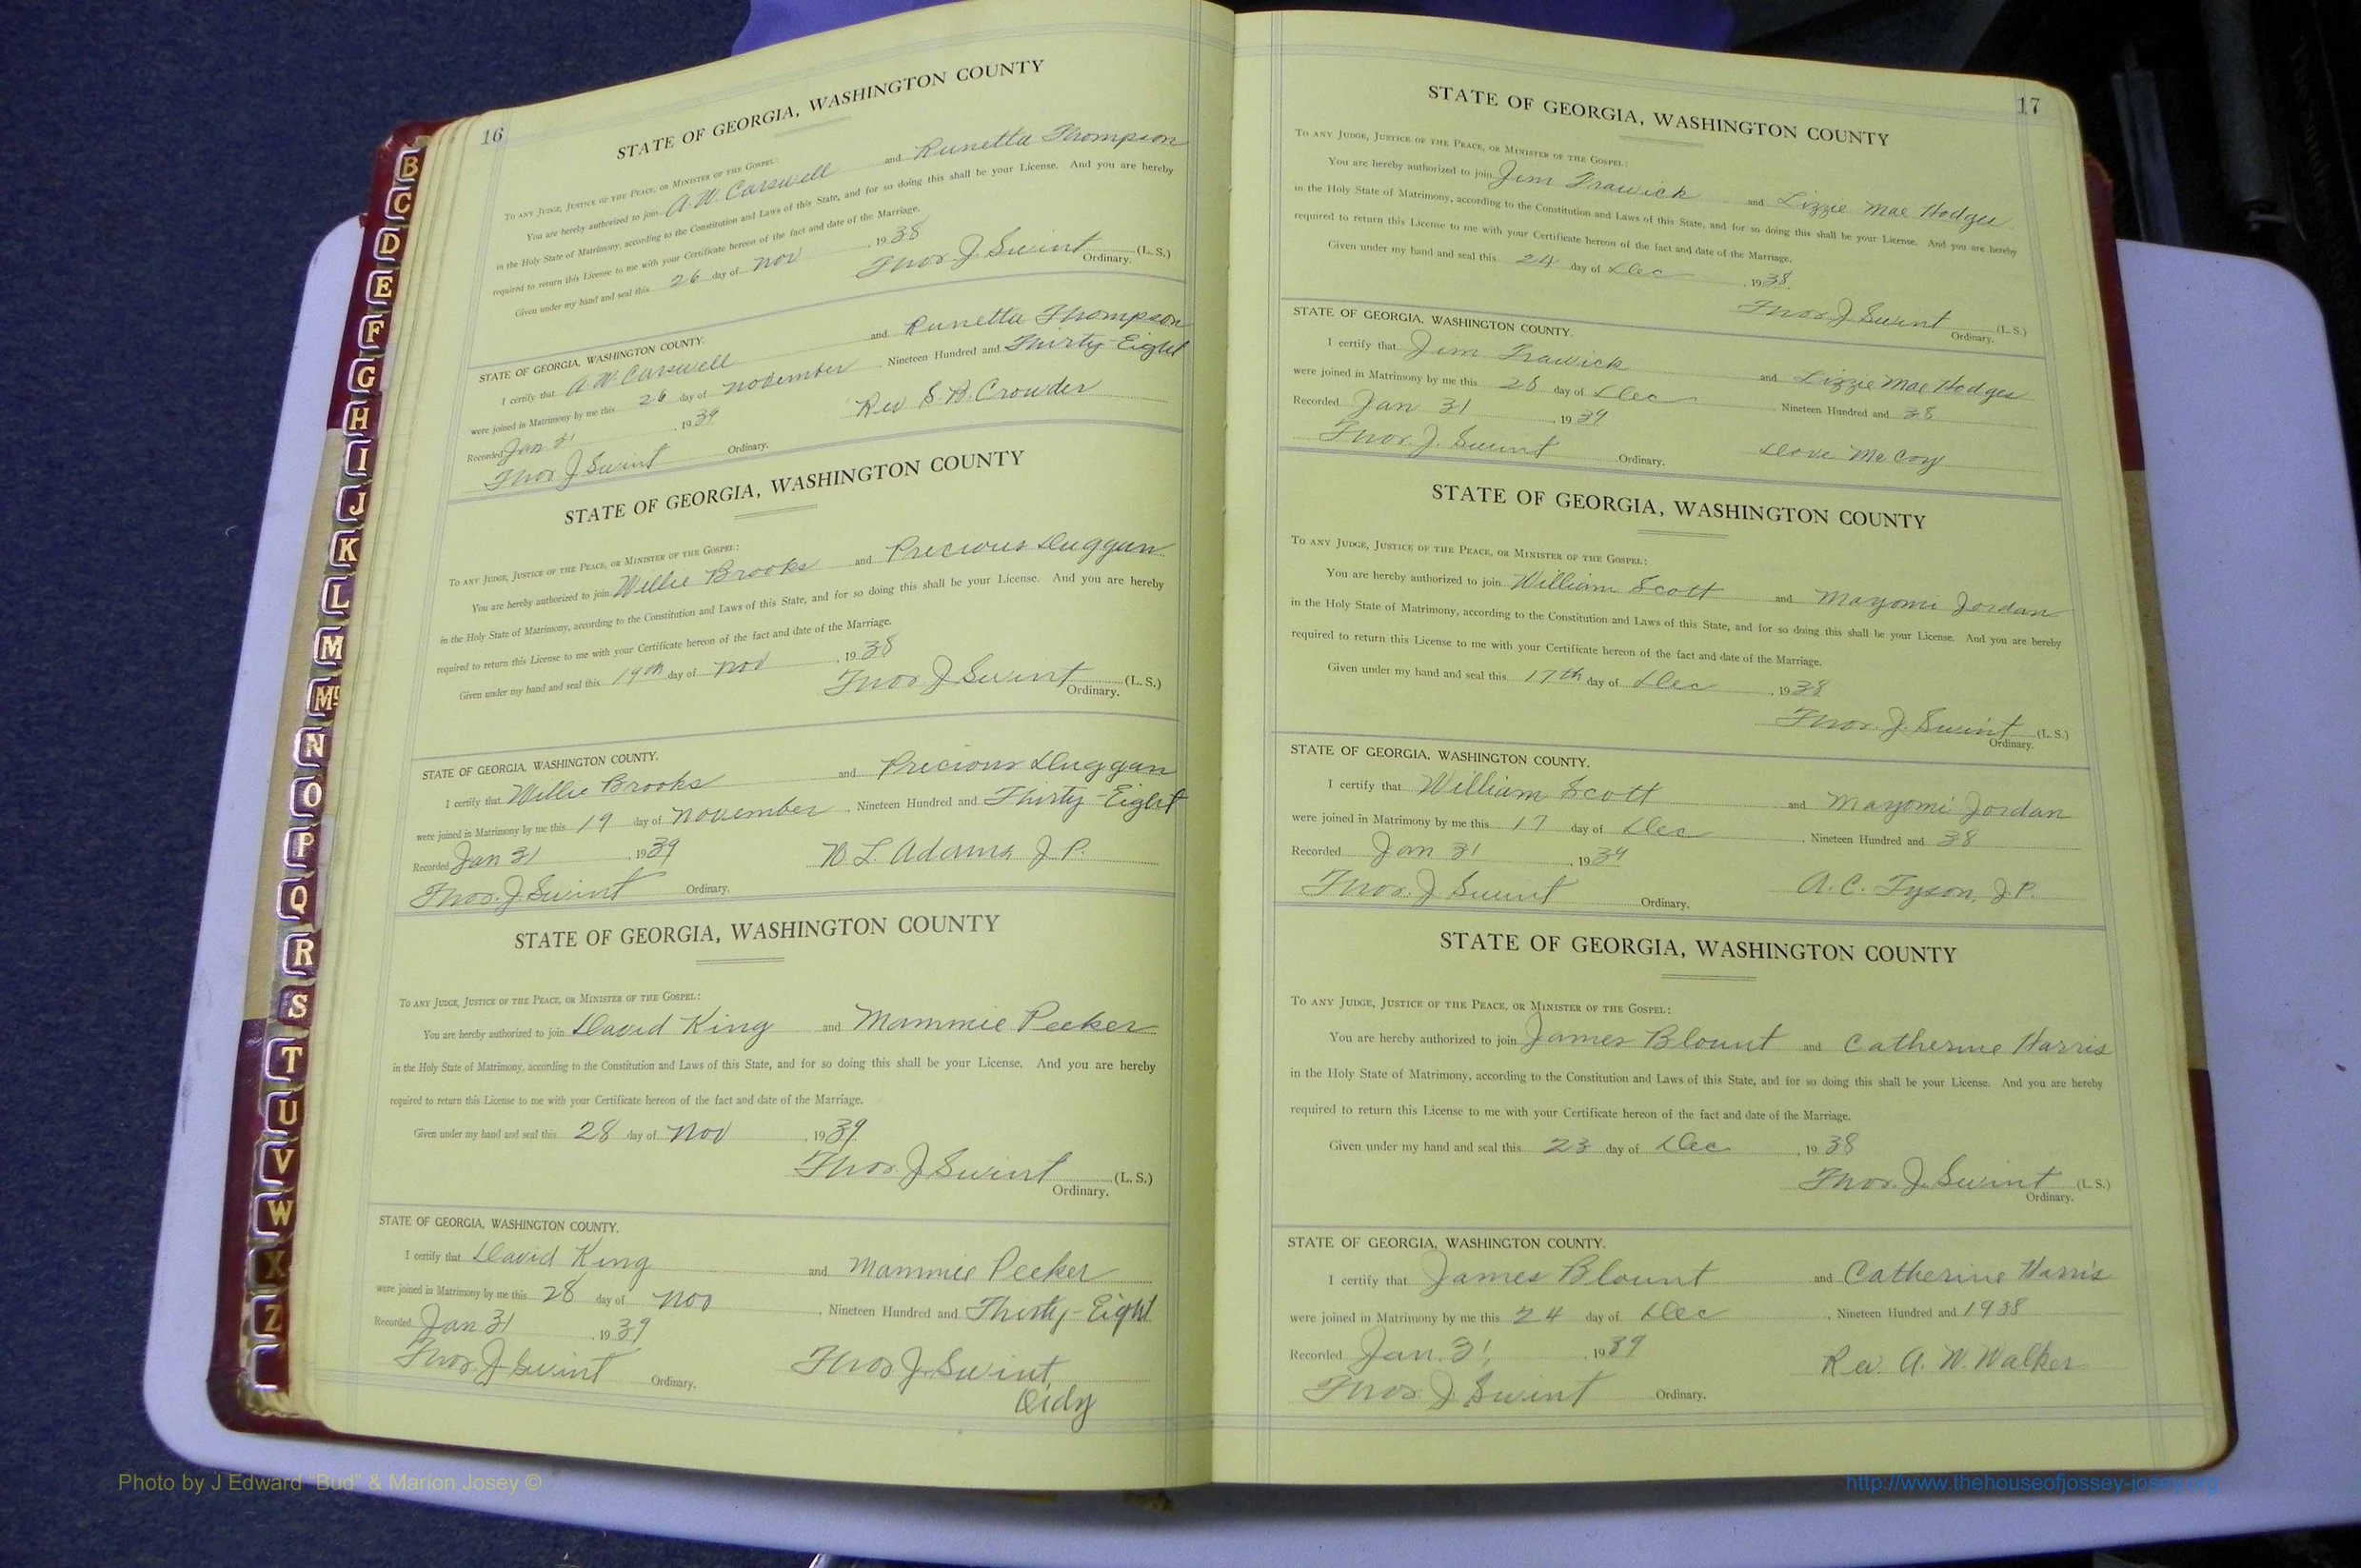 B
C
D
E
F
G
H
I
J
K
L
M
Mc
N
O
P
Q
R
S
T
U
V
W
X
Z
16
STATE OF GEORGIA, WASHINGTON COUNTY
TO ANY JUDGE, JUSTICE OF THE PEACE, OR MINISTER OF THE GOSPEL:
You are hereby authorized to join A. W. Carswell and Runetta Thompson
in the Holy State of Matrimony, according to the Constitution and Laws of this State, and for so doing this shall be your License. And you are hereby
required to return this License to me with your Certificate hereon of the fact and date of the Marriage.
Given under my hand and seal this 26 day of Nov , 1938
Thos J Swint (L. S.)
Ordinary.
STATE OF GEORGIA, WASHINGTON COUNTY.
I certify that A W Carswell and Runetta Thompson
were joined in Matrimony by me this 26 day of November , Nineteen Hundred and Thirty-Eight
Recorded Jan 31 , 1939 Rev S. B. Crowder
Thos J Swint Ordinary.
STATE OF GEORGIA, WASHINGTON COUNTY
TO ANY JUDGE, JUSTICE OF THE PEACE, OR MINISTER OF THE GOSPEL:
You are hereby authorized to join Willie Brooks and Precious Duggan
in the Holy State of Matrimony, according to the Constitution and Laws of this State, and for so doing this shall be your License. And you are hereby
required to return this License to me with your Certificate hereon of the fact and date of the Marriage.
Given under my hand and seal this 19th day of Nov , 1938
Thos J Swint (L. S.)
Ordinary.
STATE OF GEORGIA, WASHINGTON COUNTY.
I certify that Willie Brooks and Precious Duggan
were joined in Matrimony by me this 19 day of November , Nineteen Hundred and Thirty-Eight
Recorded Jan 31 , 1939 W. L. Adams J P.
Thos. J. Swint Ordinary.
STATE OF GEORGIA, WASHINGTON COUNTY
TO ANY JUDGE, JUSTICE OF THE PEACE, OR MINISTER OF THE GOSPEL:
You are hereby authorized to join David King and Mammie Peeker
in the Holy State of Matrimony, according to the Constitution and Laws of this State, and for so doing this shall be your License. And you are hereby
required to return this License to me with your Certificate hereon of the fact and date of the Marriage.
Given under my hand and seal this 28 day of Nov , 1939.
Thos. J. Swint (L. S.)
Ordinary.
STATE OF GEORGIA, WASHINGTON COUNTY.
I certify that David King and Mammie Peeker
were joined in Matrimony by me this 28 day of Nov , Nineteen Hundred and Thirty-Eight
Recorded Jan 31 , 1939 Thos J. Swint,
Thos J Swint Ordinary.
17
STATE OF GEORGIA, WASHINGTON COUNTY
TO ANY JUDGE, JUSTICE OF THE PEACE, OR MINISTER OF THE GOSPEL:
You are hereby authorized to join Jim Trawick and Lizzie Mae Hodges
in the Holy State of Matrimony, according to the Constitution and Laws of this State, and for so doing this shall be your License. And you are hereby
required to return this License to me with your Certificate hereon of the fact and date of the Marriage.
Given under my hand and seal this 24 day of Dec , 1938.
Thos J Swint (L. S.)
Ordinary.
STATE OF GEORGIA, WASHINGTON COUNTY.
I certify that Jim Trawick and Lizzie Mae Hodges
were joined in Matrimony by me this 28 day of Dec , Nineteen Hundred and 38
Recorded Jan 31 , 1939
Thos. J. Swint Ordinary. Dove McCoy
STATE OF GEORGIA, WASHINGTON COUNTY
TO ANY JUDGE, JUSTICE OF THE PEACE, OR MINISTER OF THE GOSPEL:
You are hereby authorized to join William Scott and Mayomi Jordan
in the Holy State of Matrimony, according to the Constitution and Laws of this State, and for so doing this shall be your License. And you are hereby
required to return this License to me with your Certificate hereon of the fact and date of the Marriage.
Given under my hand and seal this 17th day of Dec , 1938
Thos. J. Swint (L. S.)
Ordinary.
STATE OF GEORGIA, WASHINGTON COUNTY.
I certify that William Scott and Mayomi Jordan
were joined in Matrimony by me this 17 day of Dec , Nineteen Hundred and 38
Recorded Jan 31 , 1939
Thos. J. Swint Ordinary. A. C. Tyson, J. P.
STATE OF GEORGIA, WASHINGTON COUNTY
TO ANY JUDGE, JUSTICE OF THE PEACE, OR MINISTER OF THE GOSPEL:
You are hereby authorized to join James Blount and Catherine Harris
in the Holy State of Matrimony, according to the Constitution and Laws of this State, and for so doing this shall be your License. And you are hereby
required to return this License to me with your Certificate hereon of the fact and date of the Marriage.
Given under my hand and seal this 23 day of Dec , 1938
Thos. J. Swint (L. S.)
Ordinary.
STATE OF GEORGIA, WASHINGTON COUNTY.
I certify that James Blount and Catherine Harris
were joined in Matrimony by me this 24 day of Dec , Nineteen Hundred and 1938
Recorded Jan. 31, , 1939 Rev. A. W. Walker
Thos. J. Swint Ordinary.
Photo by J Edward "Bud" & Marion Josey ©
http://www.thehouseofjossey-josey.org